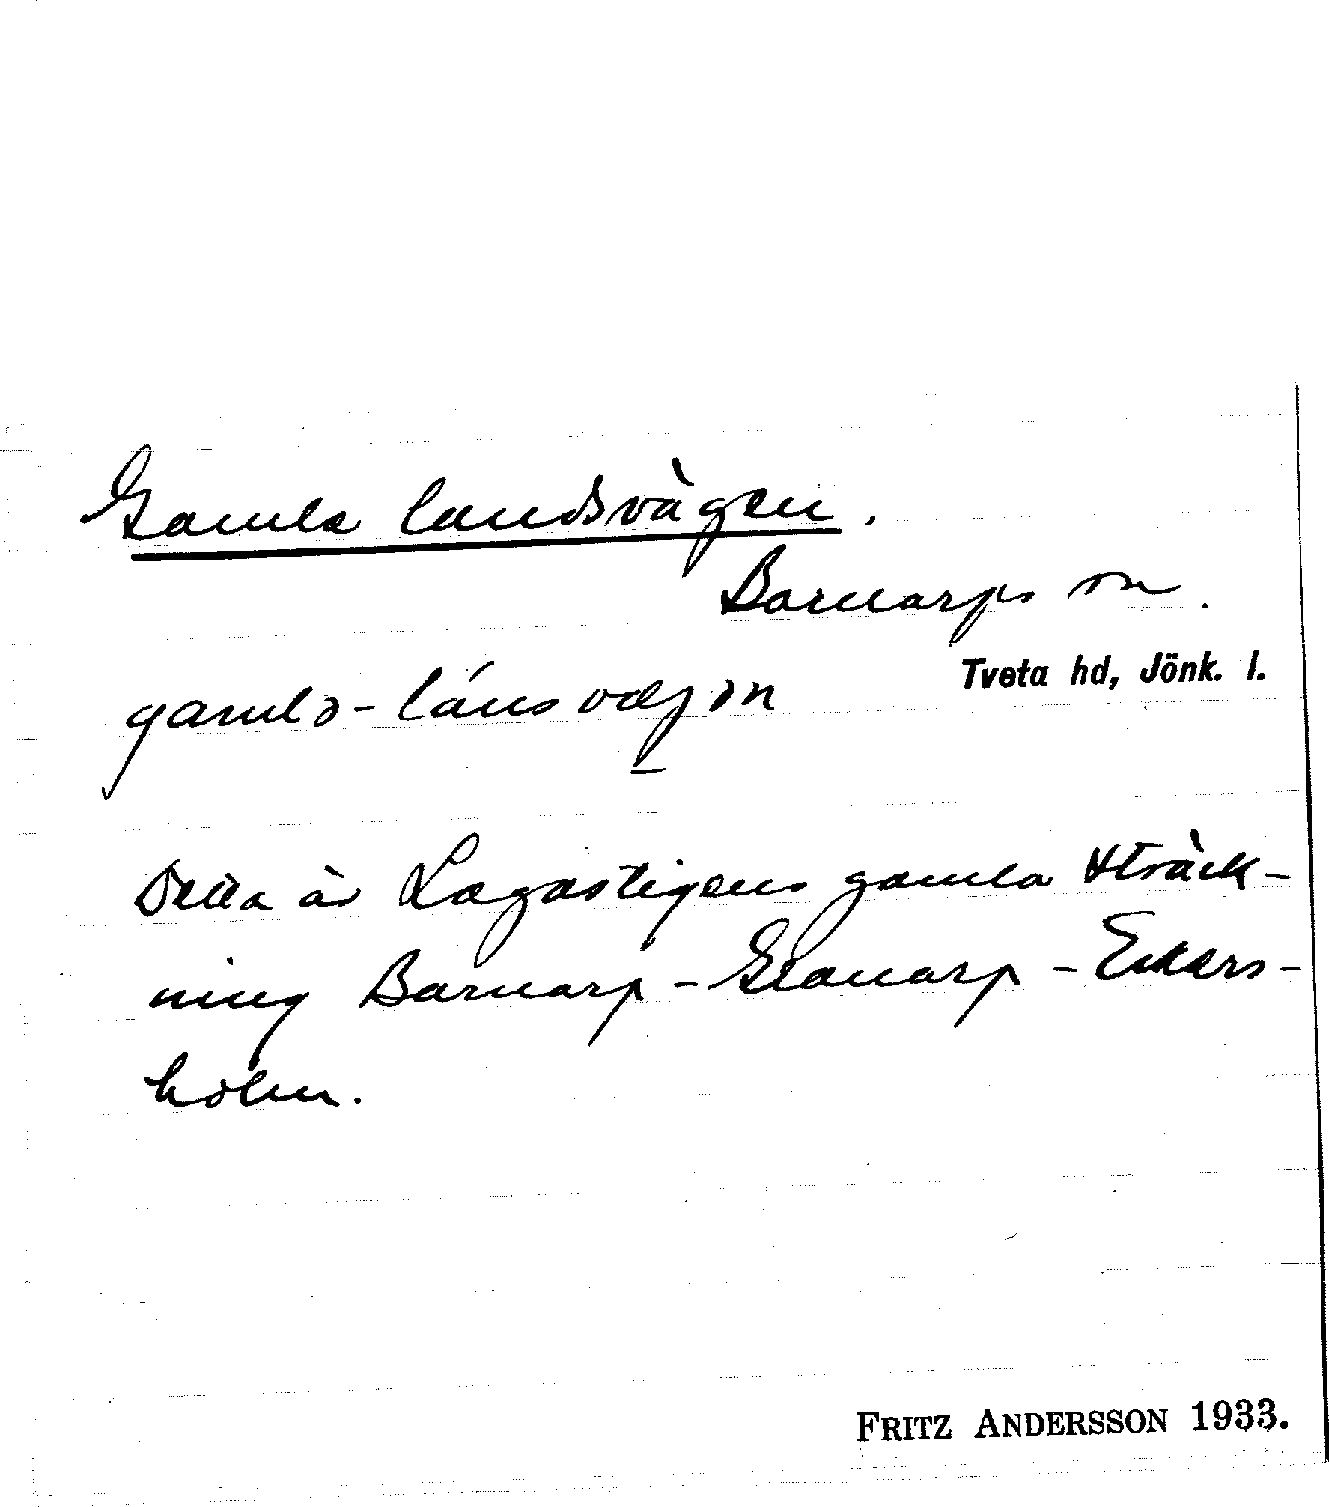 Gamla landsvägen.
Barnarps sn.
Tveta hd, Jönk. l.
Detta är Lagastigens gamla sträck-
ning Barnarp - Granarp - Eckers-
holm.
FRITZ ANDERSSON 1933.